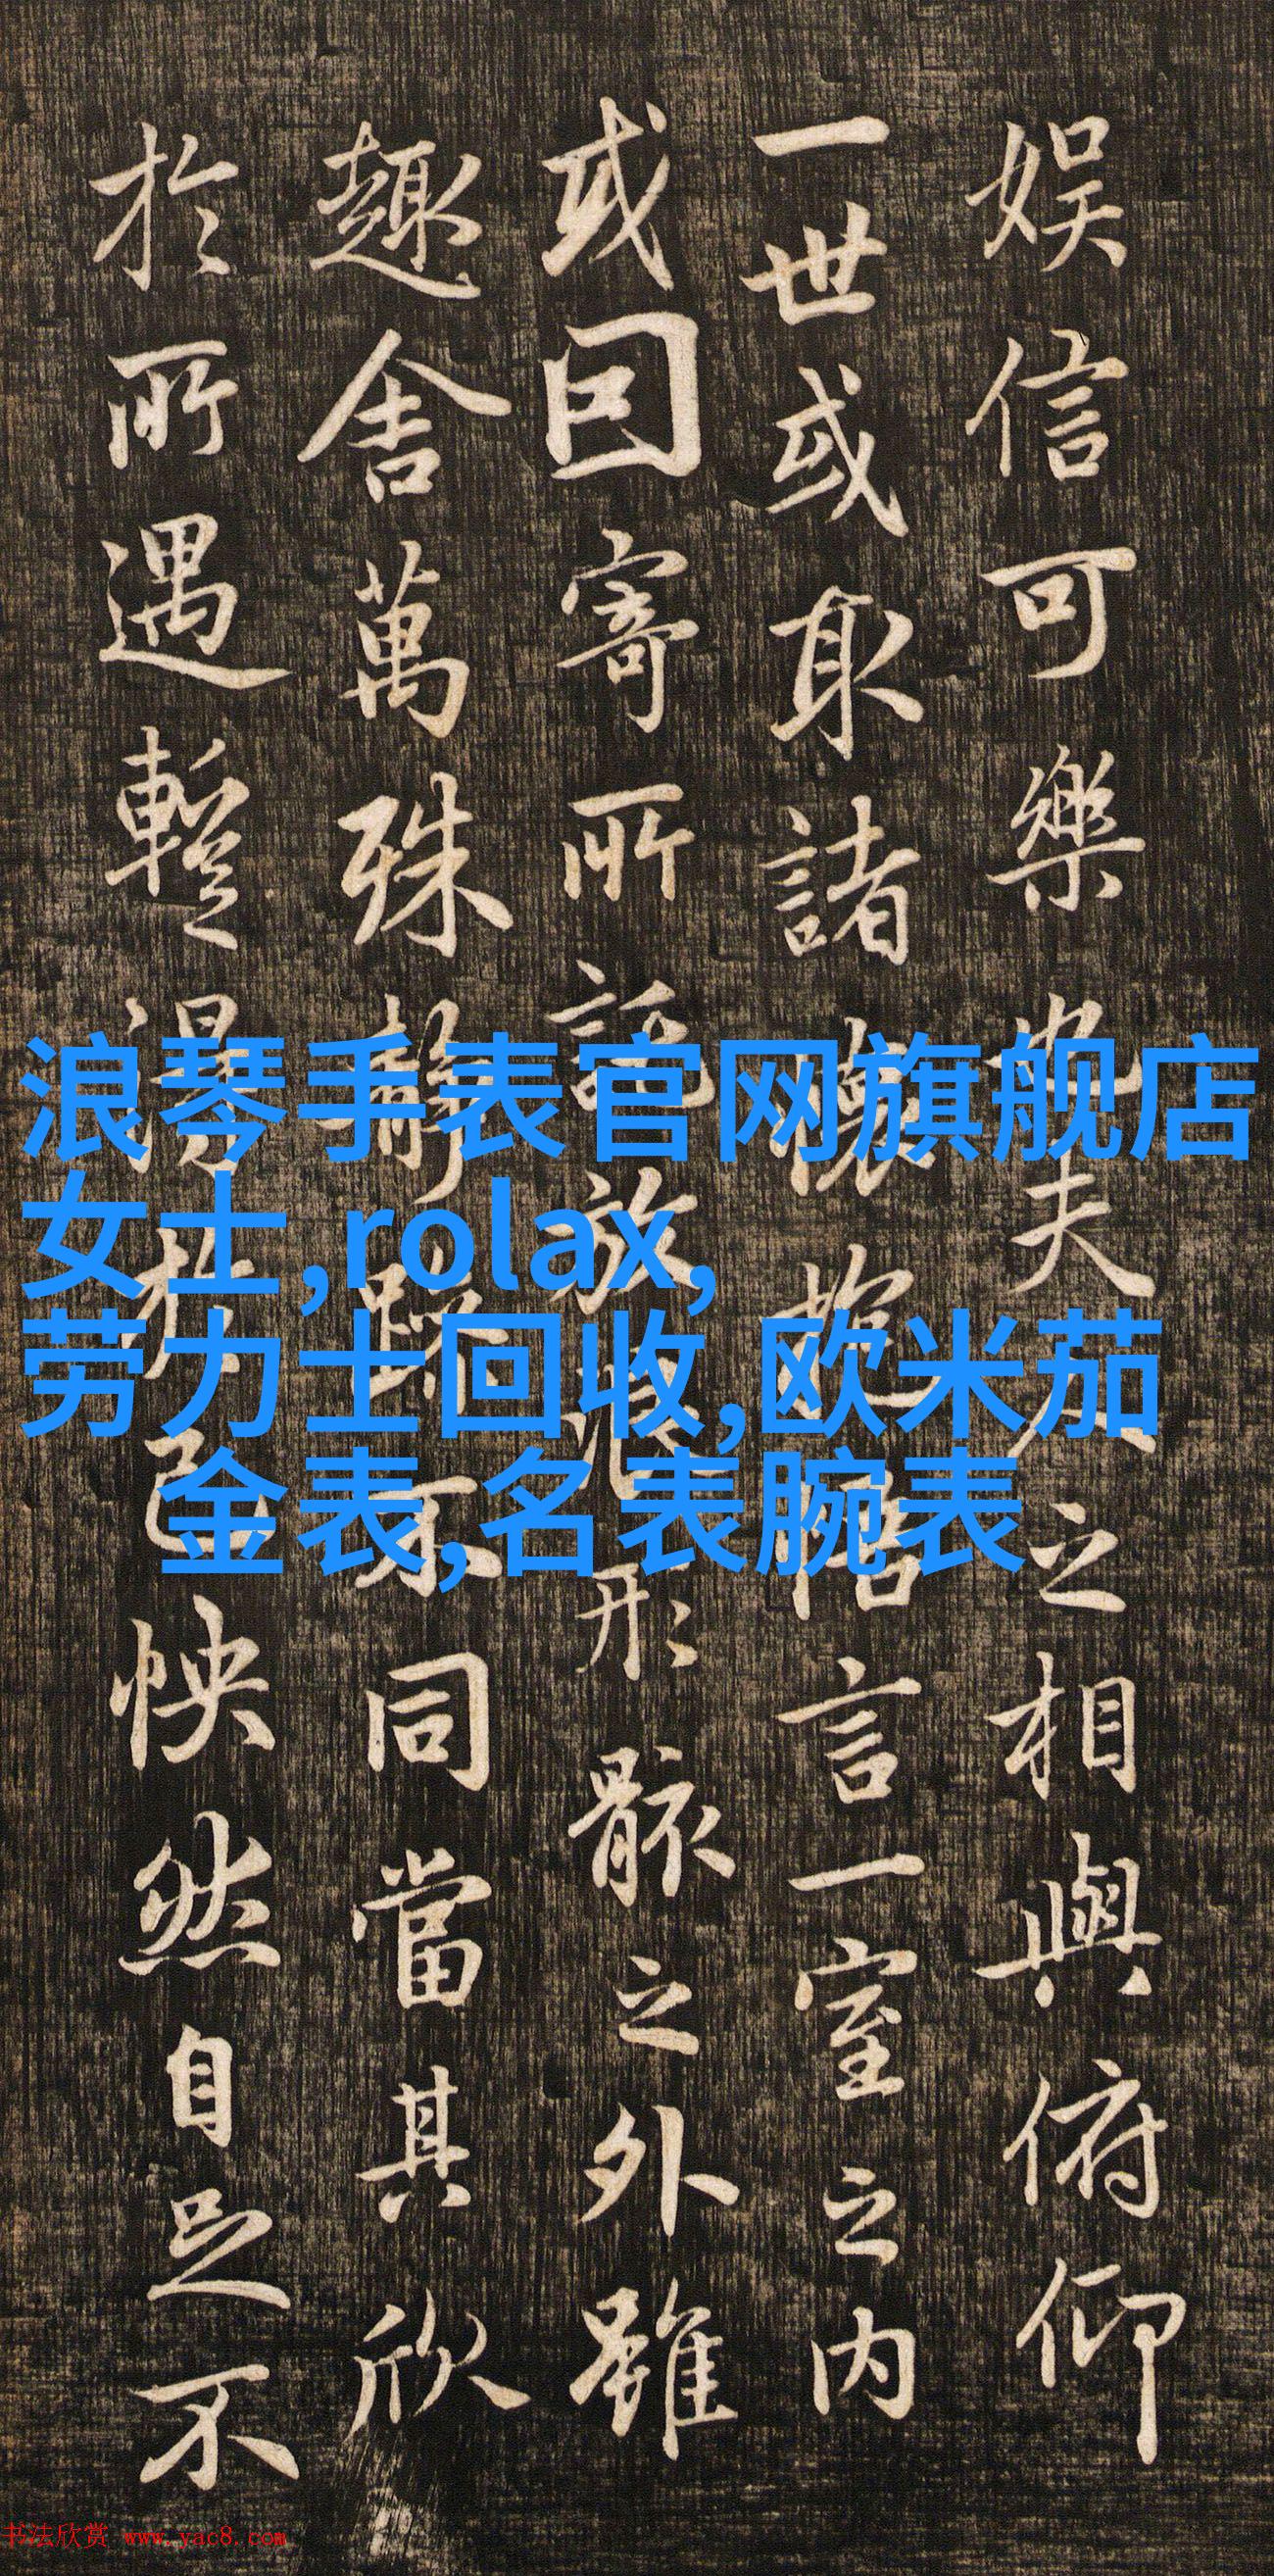 娱信可樂也夫人之相與俯仰
一世或取諸懷抱悟言一室之内
或因寄所託放浪形骸之外雖
趣舍萬殊靜躁不同當其欣
於所遇暫得於己怏然自足不
浪琴手表官网旗舰店
女士,rolax,
劳力士回收,欧米茄
金表,名表腕表
书法欣赏 www.yac8.com